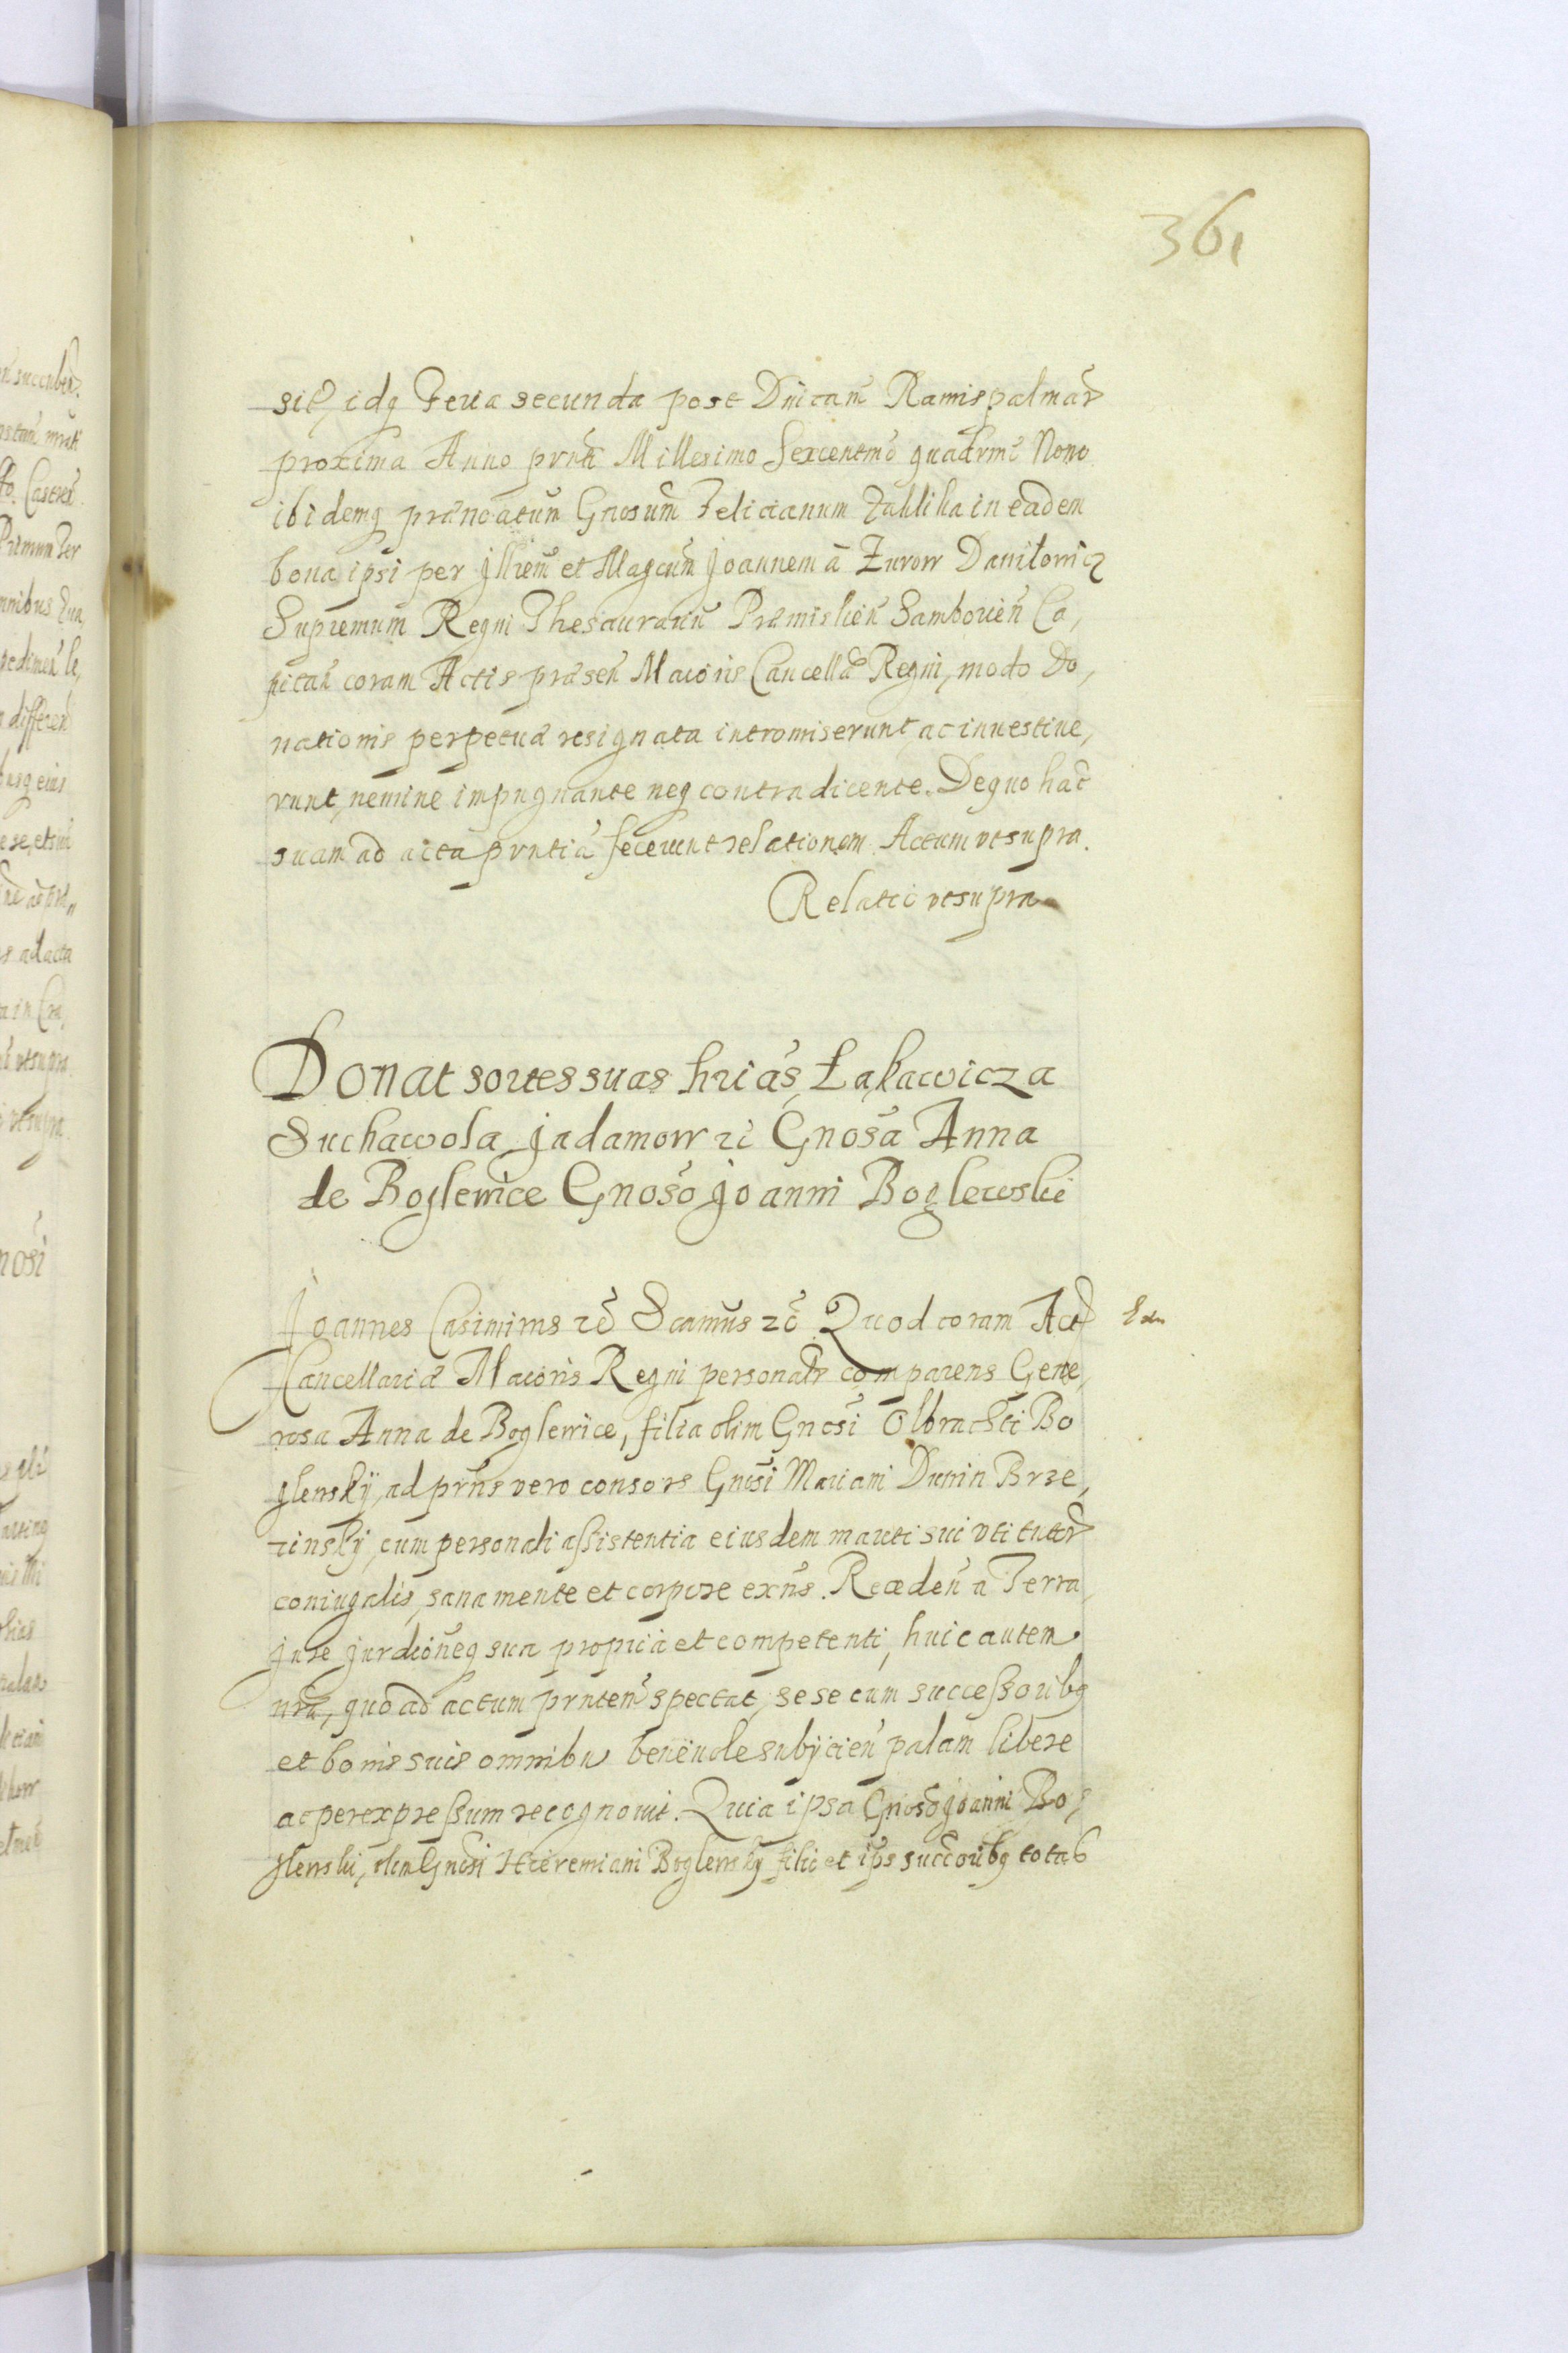 361
sit, idq Feria secunda post Dnicam Ramispalmar
proxima Anno prnti Millesimo Sexcentmo quadrmo Nono
ibidemq prænoatum Gnosum Felicianum Zaklika in eadem
bona ipsi per Jllrem et Magcum Joannem à Zurow Daniłowicz
Supremum Regni Thesaurariu Præmislien Samborien Ca,
pitan coram Actis præsen Maioris Cancellæ Regni, modo Do,
nationis perpetuæ resignata intromiserunt, ac inuestiue,
runt, nemine impugnante neq contradicente. De quo hac
suam ad acta prntia fecerunt relationem. Actum vt supra.
Relatio vt supra
Donat sortes suas hrias, Łąkawicza
Suchawola Jadamow zc Gnosa Anna
de Boglewice Gnoso Joanni Boglewski
Joannes Casimirus zc Scamus zc Quod coram Act
Cancellariæ Maioris Regni personatr comparens Gene,
rosa Anna de Boglewice, filia olim Gnosi Olbrachti Bo
glewskÿ, ad prns vero consors Gnosi Mariani Dunin Brze,
zinskÿ, cum personali assistentia eiusdem mariti sui vti tutor
coniugalis, sana mente et corpore exns. Recæden a Terra,
Jure jurdioneq sua propria et competenti, huic autem
nra, quo ad actum prntem spectat, sese cum successoribq
et bonis suis omnibu beneuole subÿcien palam libere
ac per expressum recognouit. Quia ipsa Gnoso Joanni Bo,
glewski, olim Gnosi Hieremiani Boglewskÿ filio et ips succoribq totas